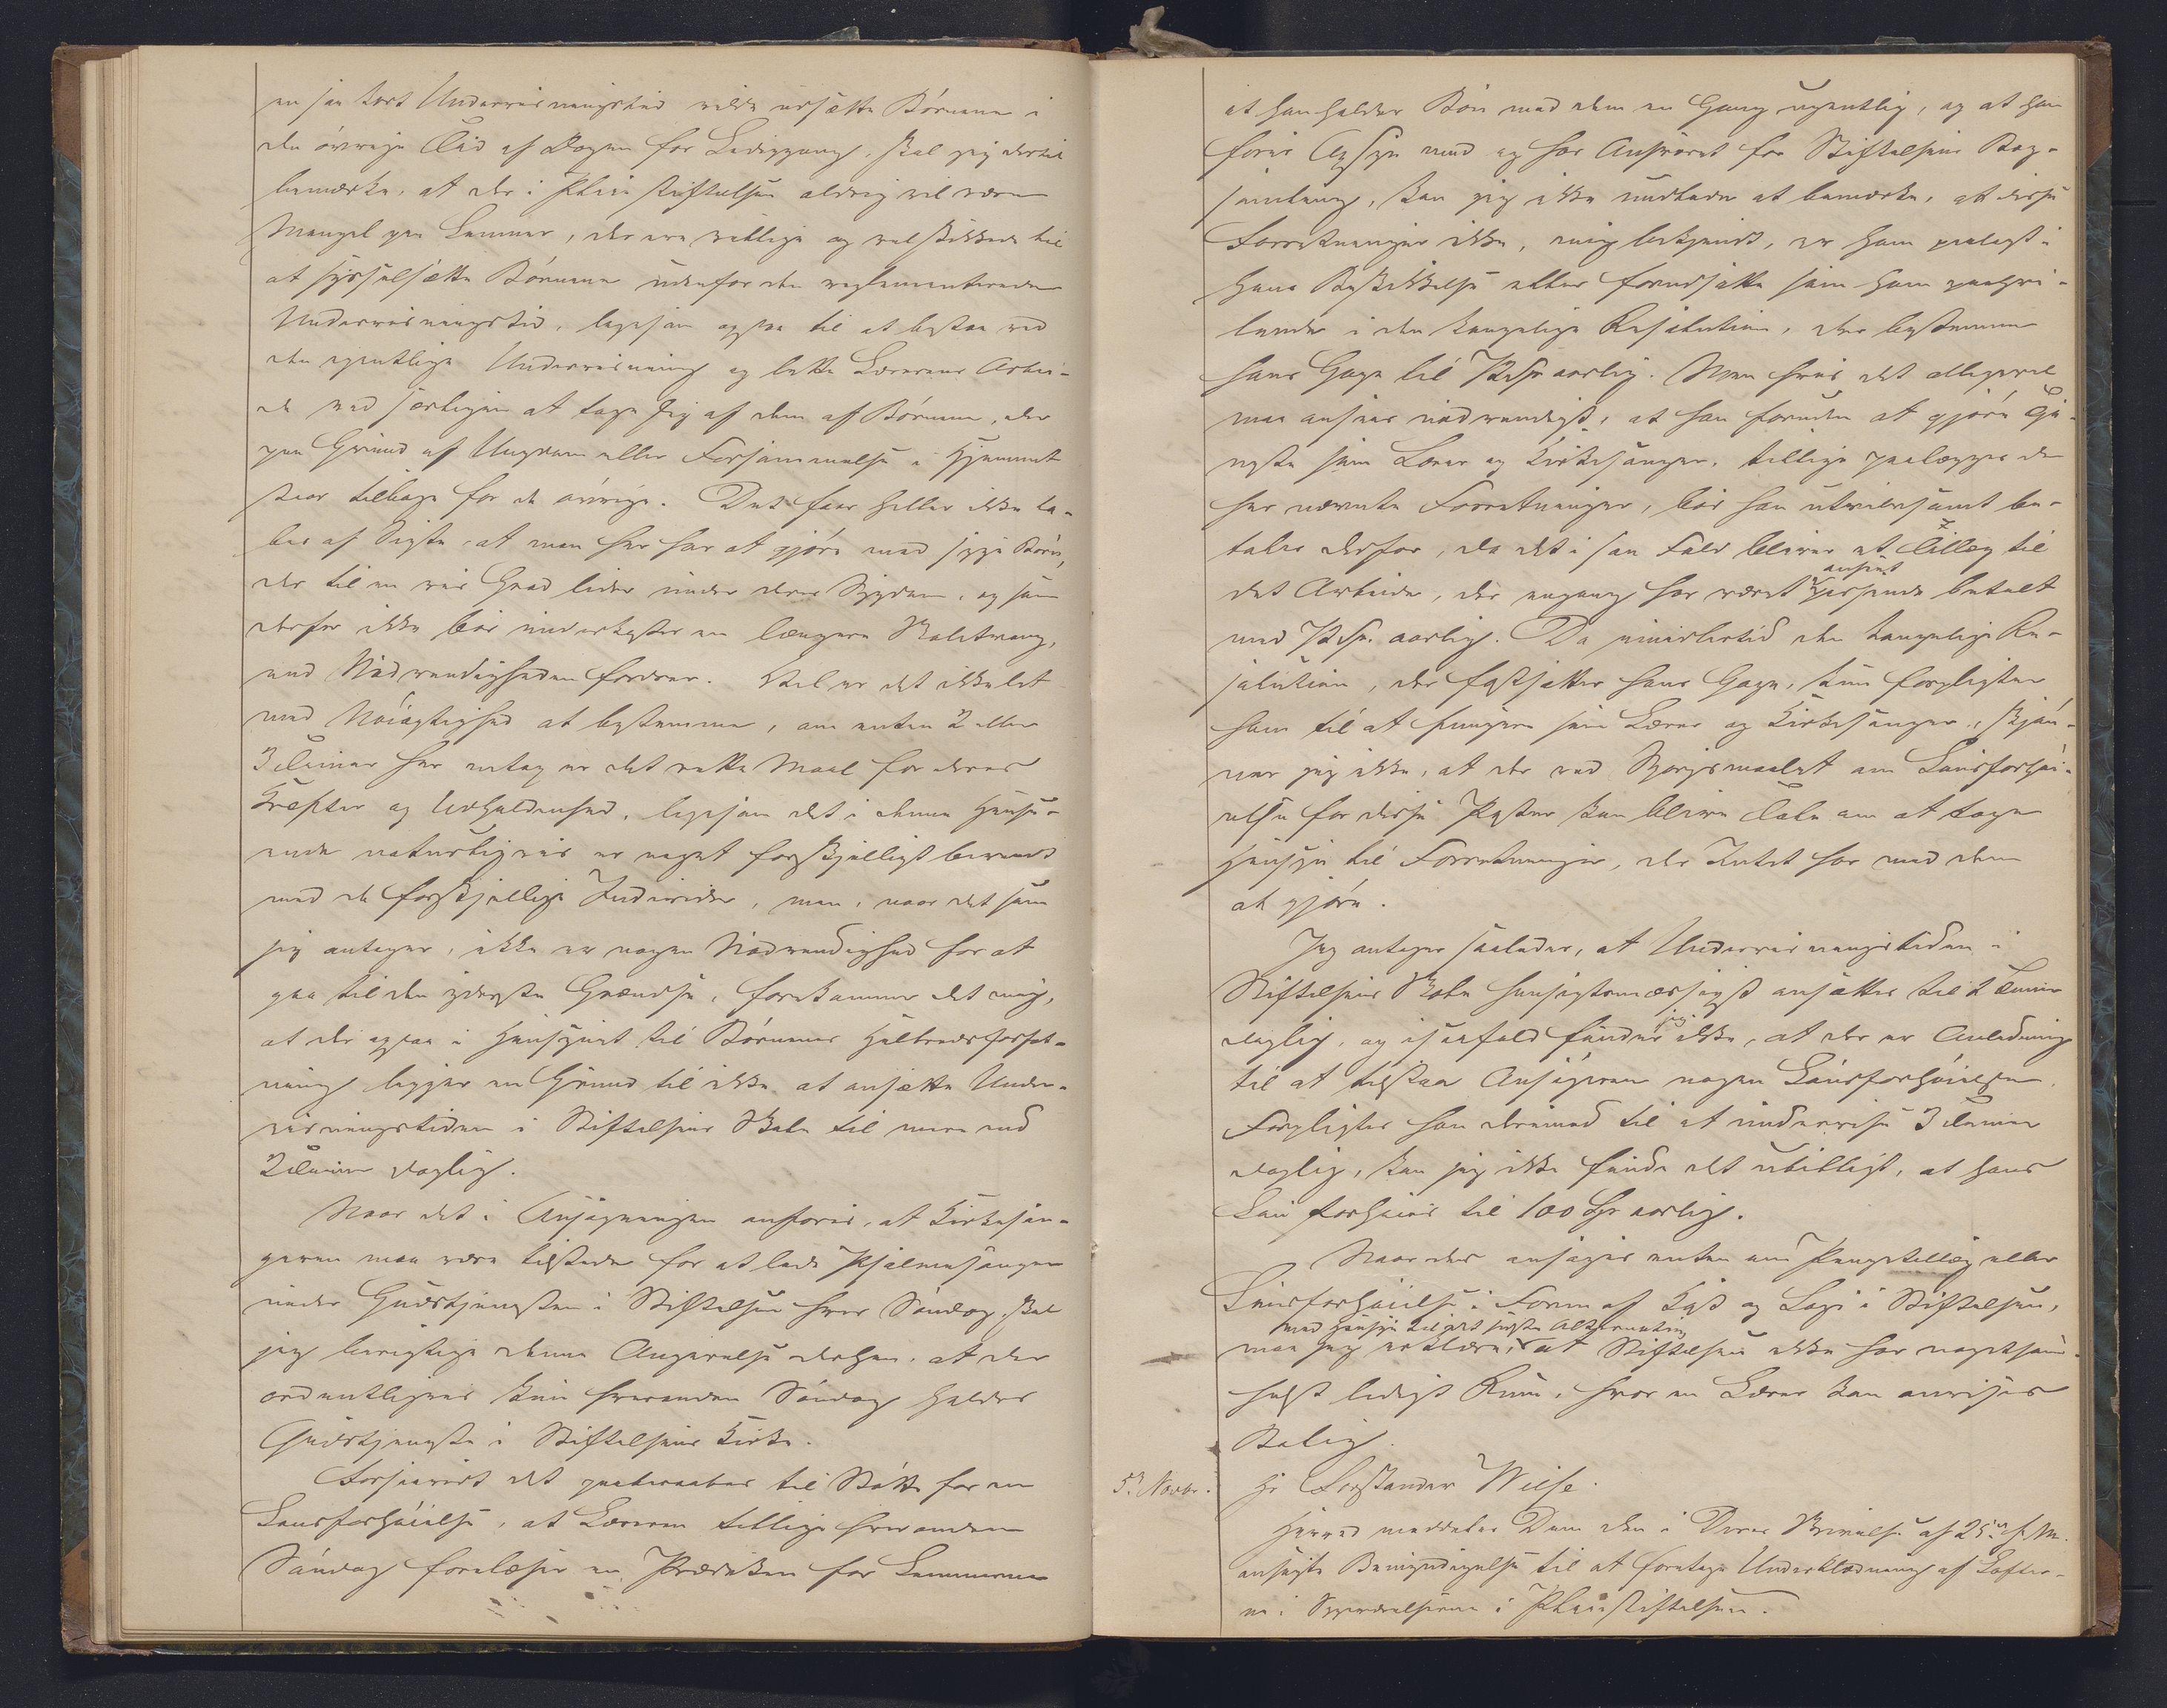 en saa kort Undervisningstid vilde udsætte Børnene i
den øvrige Tid af Dagen for Lediggang, skal jeg dertil
bemærke, at der i Pleiestiftelsen aldrig vil være
Mangel paa Lemmer, der ere villige og vel skikkede til
at sysselsætte Børnene udenfor den reglementerede
Undervisningstid, ligesom ogsaa til at bistaa ved
den egentlige Undervisning og lette Lærerens Arbei-
de ved særligen at tage sig af dem af Børnene, der
paa Grund af Ungdom eller Forsømmelse i Hjemmet
staar tilbage for de øvrige. Det faar heller ikke ta-
bes af Sigte, at man her har at gjøre med syge Børn,
der til en vis Grad lider under deres Sygdom, og som
derfor ikke bør underkastes en længere Skoletvang,
end Nødvendigheden fordrer. Vel er det ikke let
med Nøiagtighed at bestemme, om enten 2 eller
3 Timer hver Dag er det rette Maal for deres
Kræfter og Udholdenhed, ligesom det i denne Hense-
ende naturligvis er noget forskjelligt bevendt
med de forskjellige Individer, men, naar det som
jeg antager, ikke er nogen Nødvendighed for at
gaa til den yderste Grændse, forekommer det mig,
at der ogsaa i Hensynet til Børnenes Helbredsforfat-
ning ligger en Grund til ikke at ansætte Under-
visningstiden i Stiftelsens Skole til mere end
2 Timer daglig.
Naar det i Ansøgningen anføres, at Kirkesan-
geren maa være tilstede for at lede Psalmesangen
under Gudstjenesten i Stiftelsen hver Søndag, skal
jeg berigtige denne Angivelse derhen, at der
ordentligvis kun hveranden Søndag holdes
Gudstjeneste i Stiftelsens Kirke.
Forsaavidt det paaberaabes til Støtte for en
Lønsforhøielse, at Læreren tillige hveranden
Søndag forelæser en Prædiken for Lemmerne
at han holder Bøn med dem en Gang ugentlig, og at han
fører Opsyn med og har Ansvaret for Stiftelsens Bog-
samling, kan jeg ikke undlade at bemærke, at disse
Forretninger ikke, mig bekjendt, er ham paalagt i
hans Beskikkelse eller forudsatte som ham paahvi-
lende i den kongelige Resolution, der bestemmer
hans Gage til 72 Spd aarlig. Men hvis det alligevel
maa ansees nødvendigt, at han foruden at gjøre Tje-
neste som Lærer og Kirkesanger, tillige paalægges de
her nævnte Forretninger, bør han utvivlsomt be-
tales derfor, da det i saa Fald bliver et Tillæg til
det Arbeide, der engang har været anseet passende betalt
med 72 Spd. aarlig. Da imidlertid den kongelige Re-
solution, der fastsætter hans Gage, kun forpligter
ham til at fungere som Lærer og Kirkesanger, skjøn-
ner jeg ikke, at der ved Spørgsmaalet om Lønsforhøi-
else for disse Poster kan blive Tale om at tage
Hensyn til Forretninger, der Intet har med dem
at gjøre.
Jeg antager saaledes, at Undervisningstiden i
Stiftelsens Skole hensigtsmæssigst ansættes til 2 Timer
daglig, og isaafald finder jeg ikke, at der er Anledning
til at tilstaa Ansøgeren nogen Lønsforhøielse.
Forpligtes han derimod til at undervise 3 Timer
daglig, kan jeg ikke finde det ubilligt, at hans
Løn forhøies til 100 Spd aarlig.
Naar der ansøges enten om Pengetillæg eller
Lønsforhøielse i Form af Kost og Logi i Stiftelsen,
med Hensyn til det sidste Alternativ
maa jeg erklære, at Stiftelsen ikke har nogetsom-
helst ledigt Rum, hvor en Lærer kan anvises
Bolig.
5 Novbr. Hr Forstander Wiese.
Herved meddeles Dem den i Deres Skrivelse af 25de f. M.
ansøgte Bemyndigelse til at foretage Underklædning af Lofter-
ne i Sygeværelserne i Pleiestiftelsen.